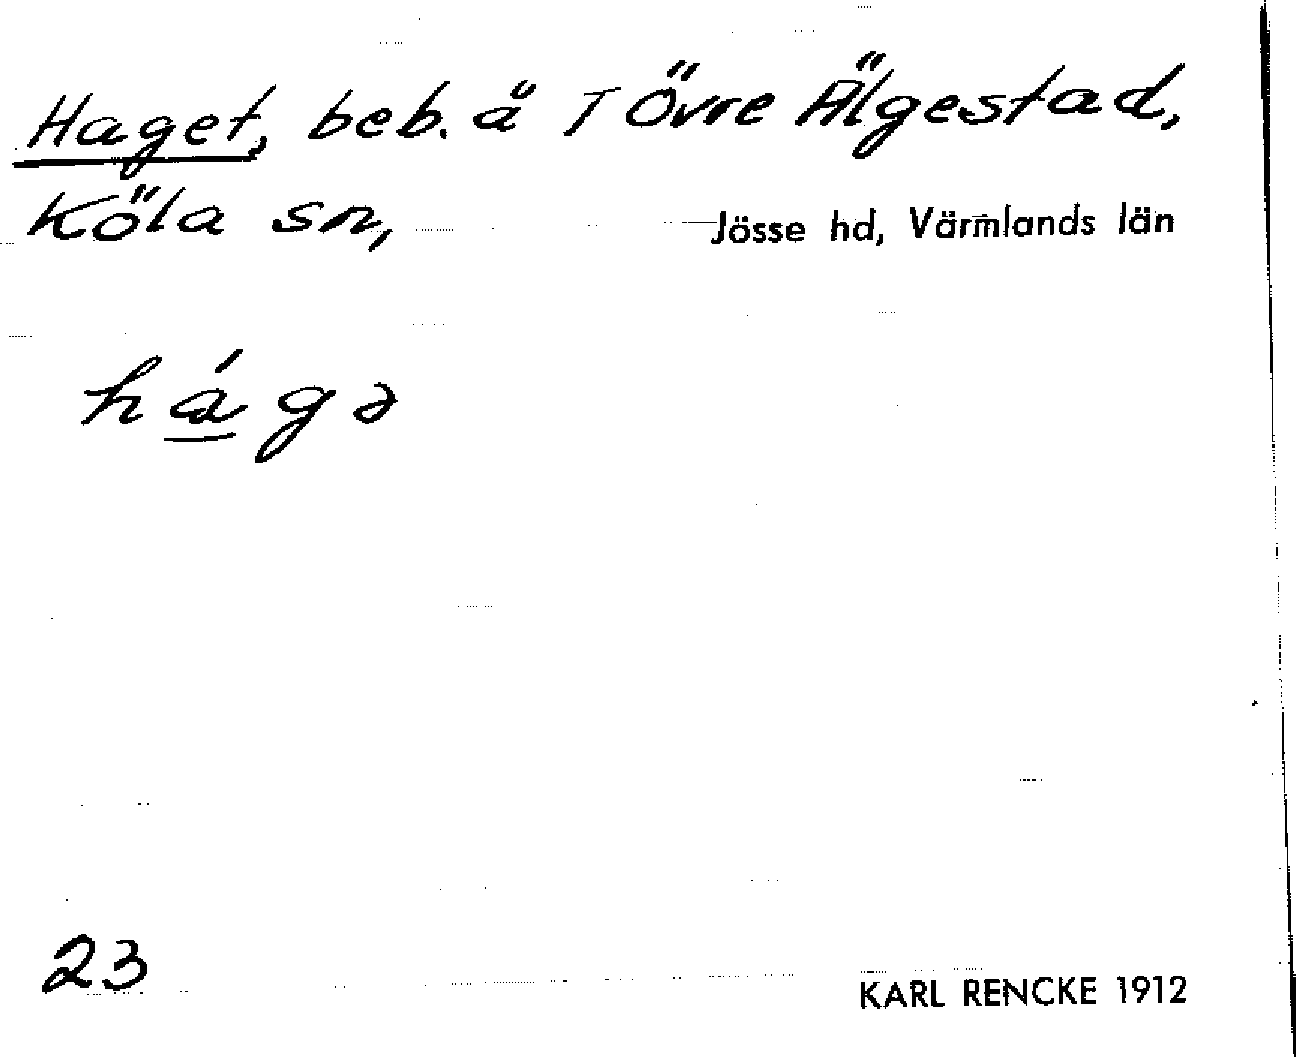 Haget, beb. å T Övre Älgestad,
Köla sn, Jösse hd, Värmlands län
há̲gə
23
KARL RENCKE 1912